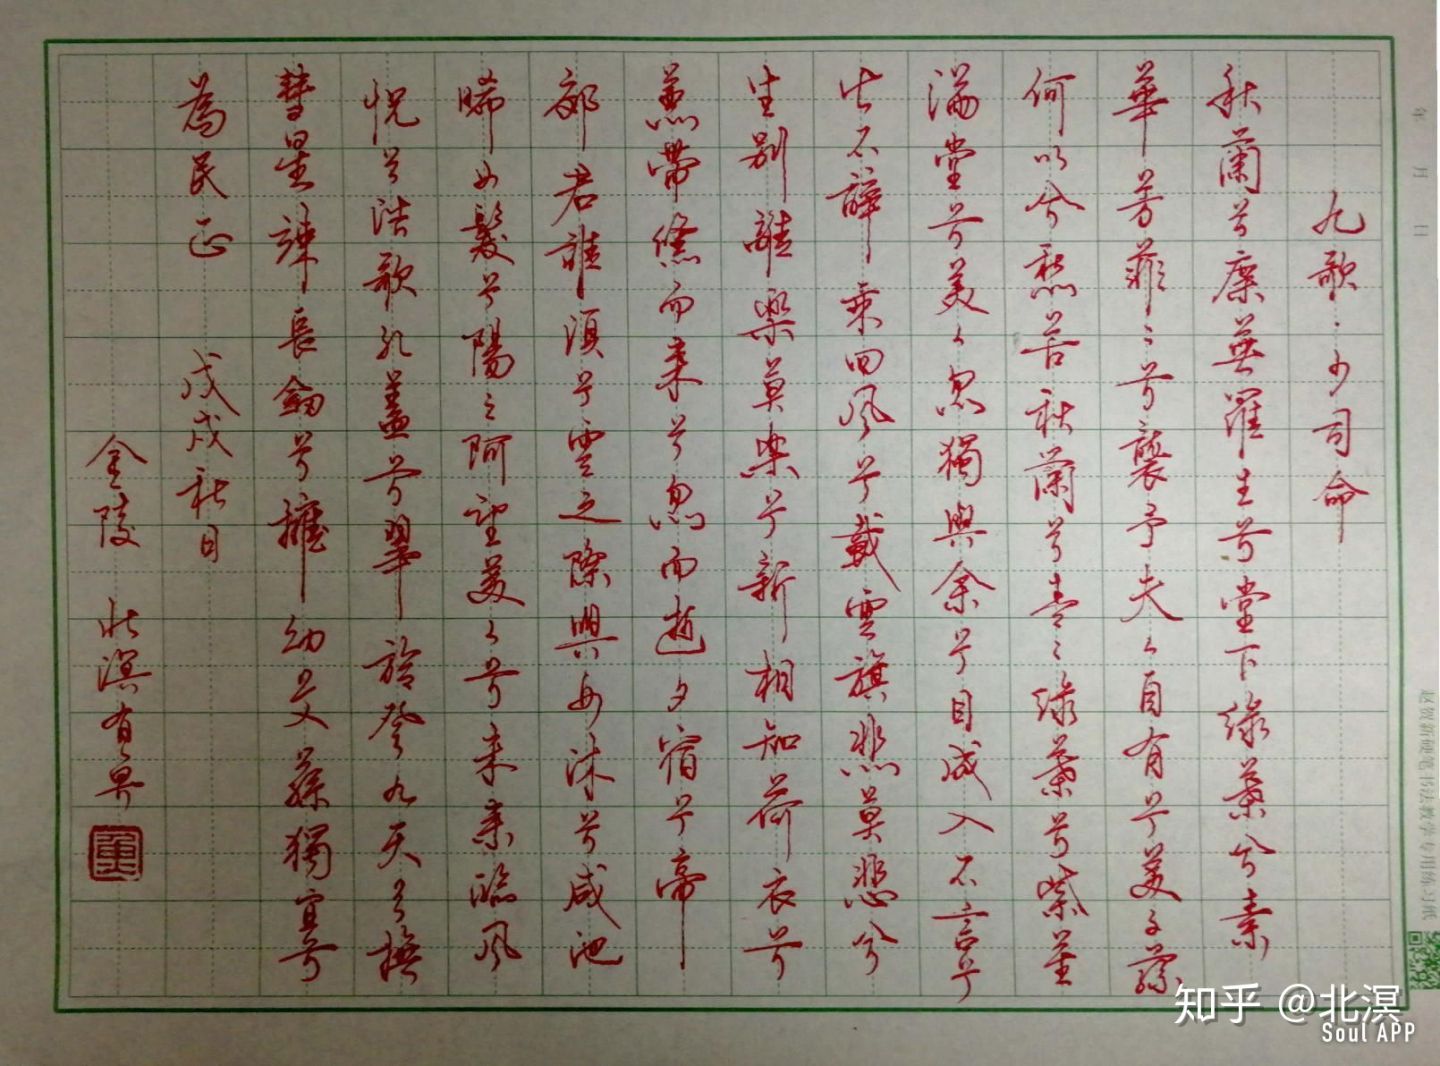 九歌·少司命
秋蘭兮麋蕪羅生兮堂下綠葉兮素
華芳菲〻兮襲予夫〻自有兮美子蓀
何以兮愁苦秋蘭兮青〻綠葉兮紫莖
滿堂兮美〻忽獨與余兮目成入不言兮
出不辭乘回風兮載雲旗悲莫悲兮
生別離樂莫樂兮新相知荷衣兮
蕙帶儵而來兮忽而逝夕宿兮帝
郊君誰須兮雲之際與女沐兮咸池
晞女髮兮陽之阿望美〻兮未來臨風
怳兮浩歌孔蓋兮翠旍登九天兮撫
彗星竦長劍兮擁幼艾蓀獨宜兮
為民正 戊戌秋日
金陵 北溟有魚
年 月 日
赵贺新硬笔书法教学专用练习纸
知乎 @北溟
Soul APP